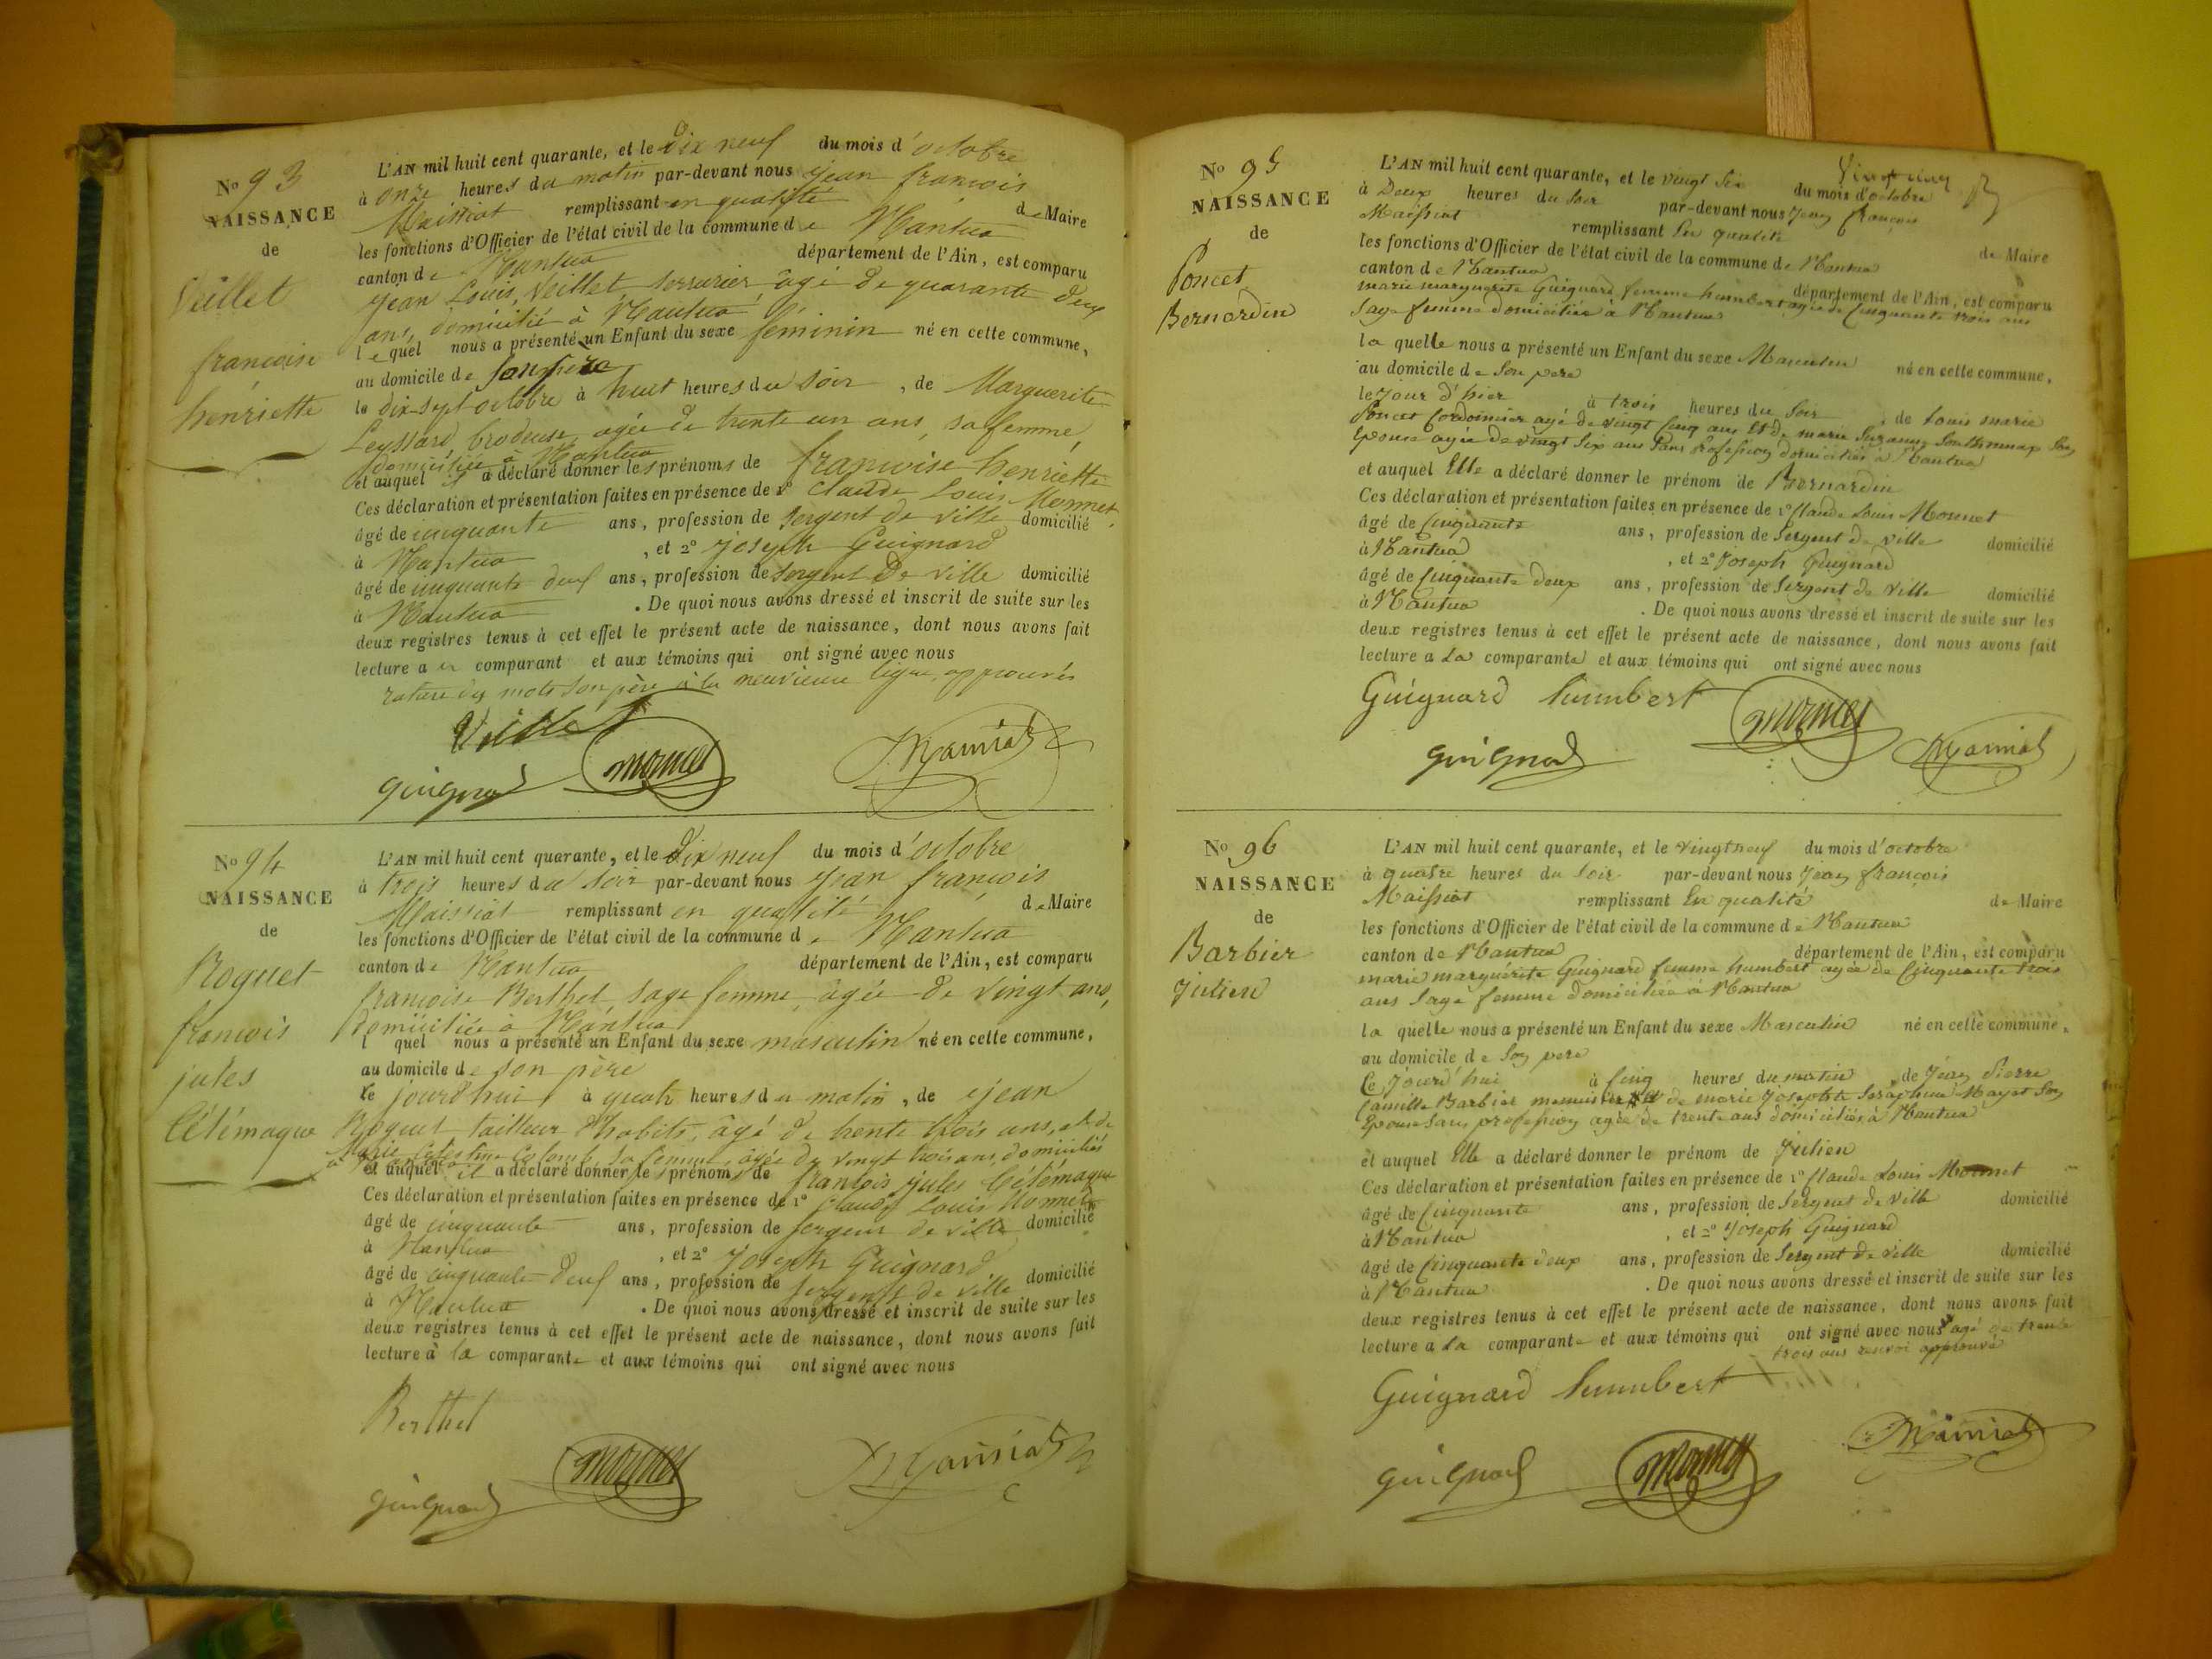 N° 93
NAISSANCE
de
Veillet
françoise
henriette
L'AN mil huit cent quarante, et le Dix neuf du mois d'octobre
à onze heures du matin par-devant nous jean françois
Maissiat remplissant en qualité de Maire
les fonctions d'Officier de l'état civil de la commune de Nantua
canton de Nantua département de l'Ain, est comparu
jean Louis Veillet serrurier âgé de quarante deux
ans, domicilié à Nantua
lequel nous a présenté un Enfant du sexe féminin né en cette commune,
au domicile de son père
le dix-sept octobre à huit heures du soir, de Marguerite
Leyssard, brodeuse, agée de trente un ans, sa femme,
domiciliée à Nantua
et auquel il a déclaré donner les prénoms de françoise henriette
Ces déclaration et présentation faites en présence de 1° claude Louis Monnet,
âgé de cinquante ans, profession de sergent de ville domicilié
à Nantua, et 2° joseph Guignard
âgé de cinquante deux ans, profession de sergent de ville domicilié
à Nantua. De quoi nous avons dressé et inscrit de suite sur les
deux registres tenus à cet effet le présent acte de naissance, dont nous avons fait
lecture au comparant et aux témoins qui ont signé avec nous
rature des mots son père à la neuvieme ligne approuvés
Veillet
guignard monnet Maissiat
N° 94
NAISSANCE
de
Roguet
françois
jules
Télémaque
L'AN mil huit cent quarante, et le Dix neuf du mois d'octobre
à trois heures du soir par-devant nous jean françois
Maissiat remplissant en qualité de Maire
les fonctions d'Officier de l'état civil de la commune de Nantua
canton de Nantua département de l'Ain, est comparu
françoise Berthet, sage femme, âgée de vingt ans,
domiciliée à Nantua
l quel nous a présenté un Enfant du sexe masculin né en cette commune,
au domicile de son père
le jourd'hui à quatre heures du matin, de jean
Roguet tailleur d'habits, âgé de trente trois ans, et de
Marie Célestine Colomb, sa femme, âgée de vingt trois ans, domiciliés
à Nantua
et auquel il a déclaré donner les prénoms de françois jules Télémaque
Ces déclaration et présentation faites en présence de 1° claude Louis Monnet
âgé de cinquante ans, profession de sergent de ville domicilié
à Nantua, et 2° Joseph Guignard
âgé de cinquante deux ans, profession de sergent de ville domicilié
à Nantua. De quoi nous avons dressé et inscrit de suite sur les
deux registres tenus à cet effet le présent acte de naissance, dont nous avons fait
lecture à la comparante et aux témoins qui ont signé avec nous
Berthet
guignard monnet Maissiat
N° 95
NAISSANCE
de
Poncet
Bernardin
L'AN mil huit cent quarante, et le vingt six du mois d'octobre
à Deux heures du soir par-devant nous jean françois
Maissiat remplissant en qualité de Maire
les fonctions d'Officier de l'état civil de la commune de Nantua
canton de Nantua département de l'Ain, est comparu
marie marguerite Guignard, femme humbert agée de Cinquante trois ans
sage femme domiciliée a Nantua
la quelle nous a présenté un Enfant du sexe Masculin né en cette commune,
au domicile de son pere
le jour d'hier à trois heures du soir, de Louis marie
Poncet Cordonnier agé de vingt Cinq ans Et de marie Suzanne son
Epouse agée de vingt six ans sans profession domiciliés a Nantua
et auquel Elle a déclaré donner le prénom de Bernardin
Ces déclaration et présentation faites en présence de 1° Claude Louis Monnet
âgé de Cinquante ans, profession de Sergent de ville domicilié
à Nantua, et 2° Joseph Guignard
âgé de Cinquante deux ans, profession de Sergent de ville domicilié
à Nantua. De quoi nous avons dressé et inscrit de suite sur les
deux registres tenus à cet effet le présent acte de naissance, dont nous avons fait
lecture a La comparante et aux témoins qui ont signé avec nous
Guignard humbert monnet
guignard Maissiat
N° 96
NAISSANCE
de
Barbier
Julien
L'AN mil huit cent quarante, et le vingt neuf du mois d'octobre
à quatre heures du soir par-devant nous jean françois
Maissiat remplissant En qualité de Maire
les fonctions d'Officier de l'état civil de la commune de Nantua
canton de Nantua département de l'Ain, est comparu
marie marguérite Guignard femme humbert agée de Cinquante trois
ans sage femme domiciliée à Nantua
la quelle nous a présenté un Enfant du sexe Masculin né en cette commune,
au domicile de son pere
Ce jourd'hui à Cinq heures du matin, de jean Pierre
Camille Barbier menuisier et de marie Josephte Séraphine Mayet son
Epouse sans profession agée de trente ans domiciliés à Nantua
et auquel Elle a déclaré donner le prénom de Julien
Ces déclaration et présentation faites en présence de 1° Claude Louis Monnet
âgé de Cinquante ans, profession de Sergent de ville domicilié
à Nantua, et 2° Joseph Guignard
âgé de Cinquante deux ans, profession de Sergent de ville domicilié
à Nantua. De quoi nous avons dressé et inscrit de suite sur les
deux registres tenus à cet effet le présent acte de naissance, dont nous avons fait
lecture a La comparante et aux témoins qui ont signé avec nous agé de trente
trois ans renvoi approuvé
Guignard humbert
guignard monnet Maissiat